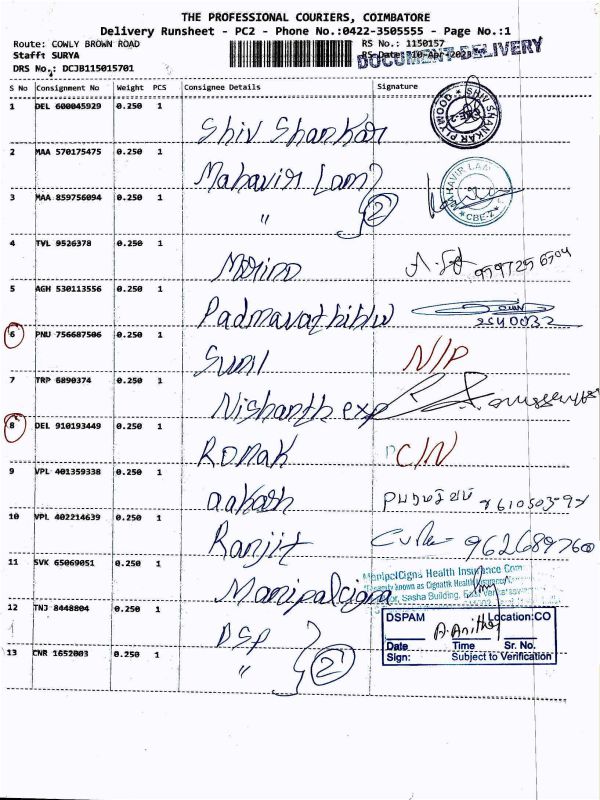 THE PROFESSIONAL COURIERS, COIMBATORE
Delivery Runsheet - PC2 - Phone No.:0422-3505555 - Page No.:1
Route: COWLY BROWN ROAD
RS No.: 1150157
Staff: SURYA
RS Date: 10-Apr-2023
DOCUMENT DELIVERY
DRS No.: DCJB115015701
S No Consignment No Weight PCS Consignee Details Signature
1 DEL 600045929 0.250 1 Shiv Shankar
SHIV SHANKAR PLYWOOD CBE-2
2 MAA 570175475 0.250 1 Mahavir Lam
MAHAVIR LAM CBE-2
3 MAA 859756094 0.250 1 " 2
4 TVL 9526378 0.250 1
5 AGH 530113556 0.250 1
2540032
6 PNU 756687506 0.250 1 Sunil N/P
7 TRP 6890374 0.250 1 Nishanth exp
8 DEL 910193449 0.250 1 Ronak C/N
9 VPL 401359338 0.250 1 aakash
10 VPL 402214639 0.250 1 Ranjit
11 SVK 65069051 0.250 1 Manipalcigna
ManipalCigna Health Insurance Com
Sasha Building,
12 TNJ 8448804 0.250 1 DSP
13 CNR 1652003 0.250 1 " 2
DSPAM Location:CO
A. Anitha
Date Time Sr. No.
Sign: Subject to Verification